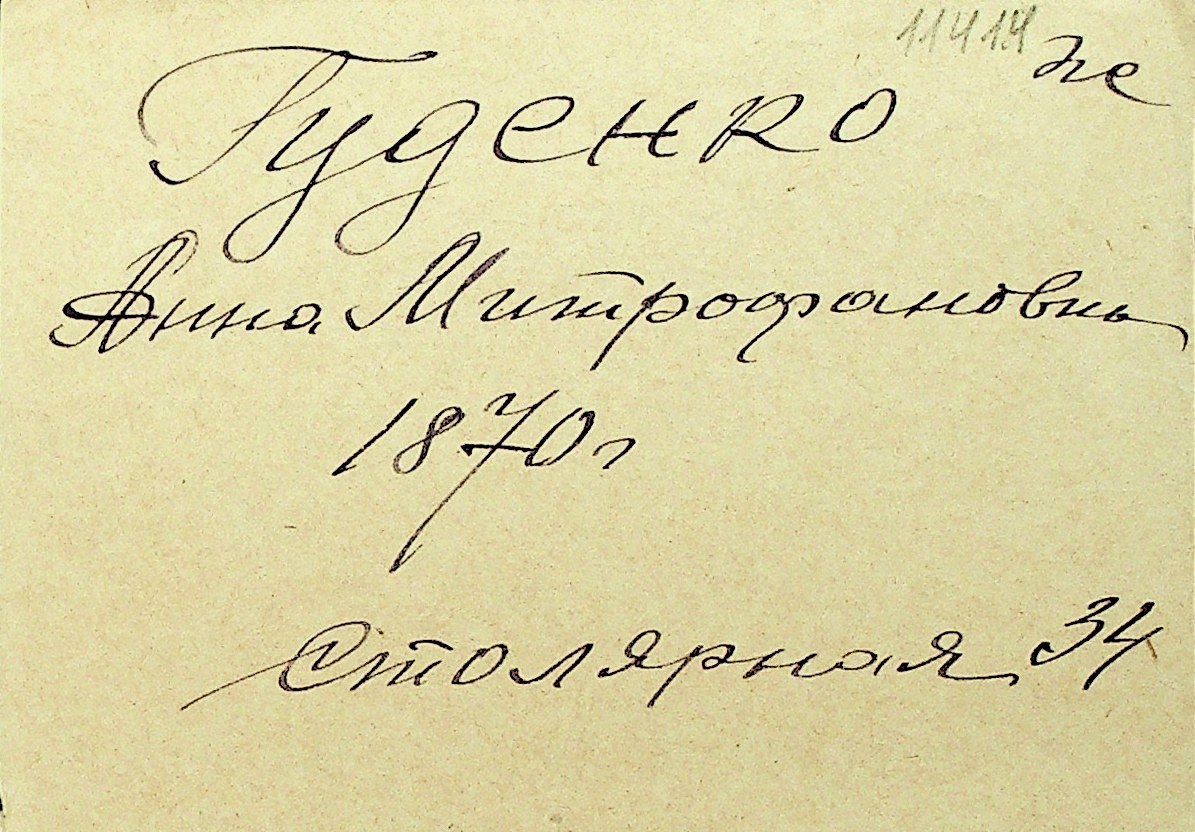 11414
Гуденко
Анна Митрофановна
1870 г
Столярная 34